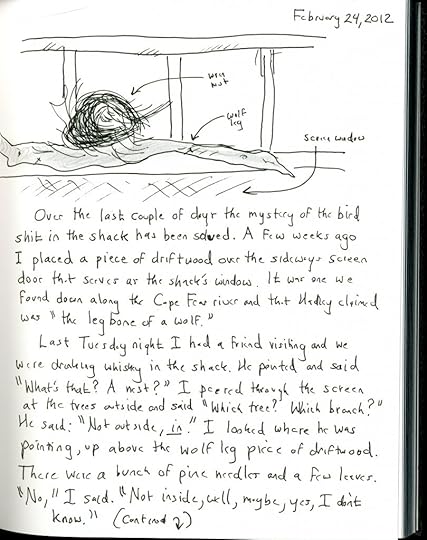 February 24, 2012
wren
nest
wolf
leg
screen window
Over the last couple of days the mystery of the bird
shit in the shack has been solved. A few weeks ago
I placed a piece of driftwood over the sideways screen
door that serves as the shack's window. It was one we
found down along the Cape Fear river and that Hadley claimed
was "the leg bone of a wolf."
Last Tuesday night I had a friend visiting and we
were drinking whisky in the shack. He pointed and said
"What's that? A nest?" I peered through the screen
at the trees outside and said "Which tree? Which branch?"
He said: "Not outside, in." I looked where he was
pointing, up above the wolf leg piece of driftwood.
There were a bunch of pine needles and a few leaves.
"No," I said. "Not inside, well, maybe, yes, I don't
know." (Continued